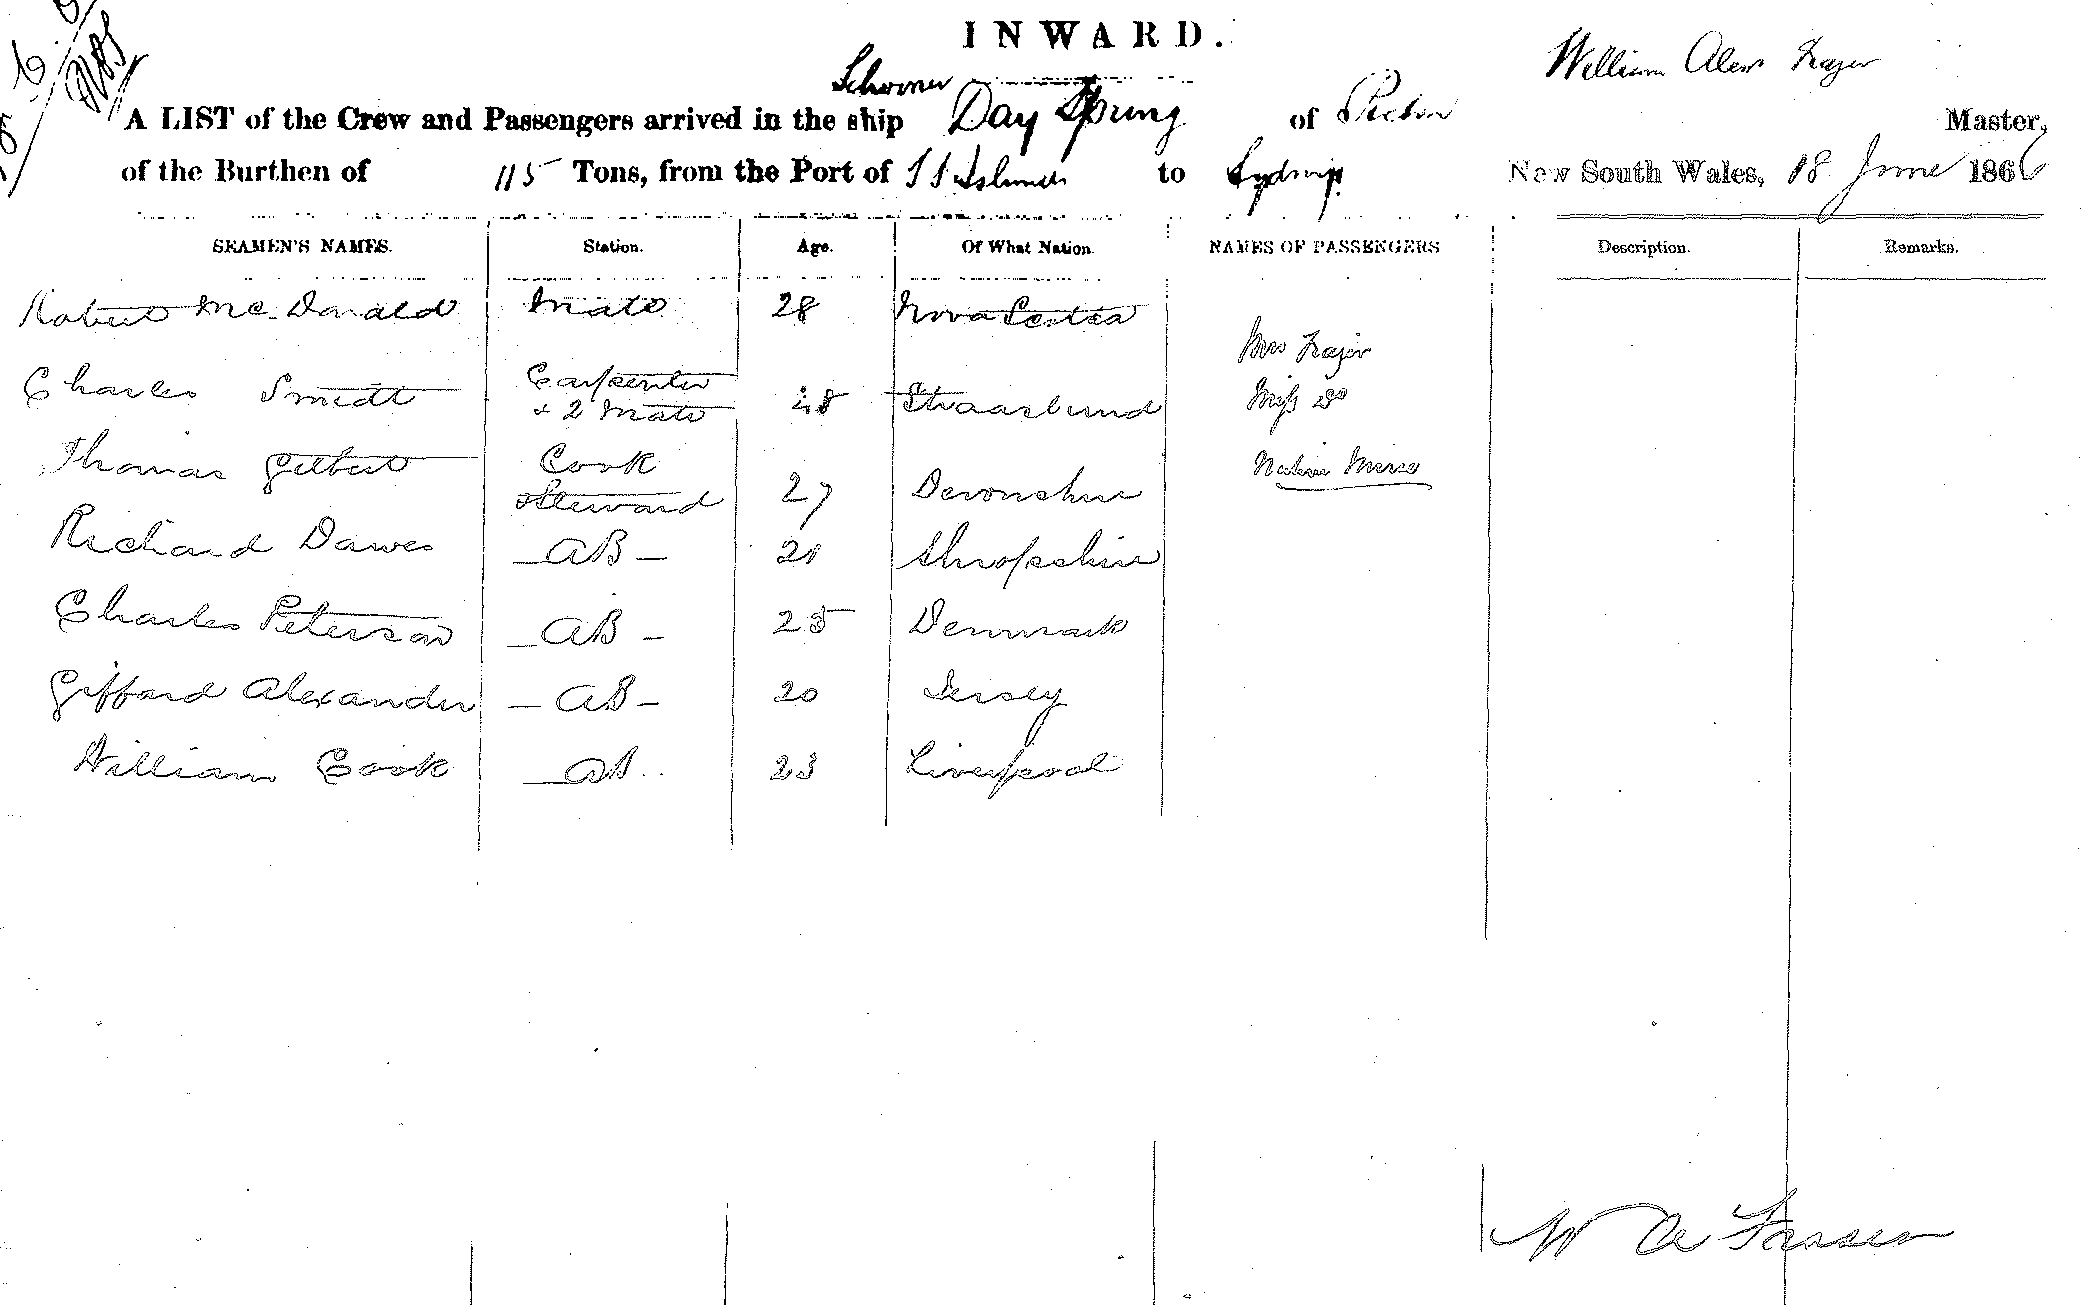 INWARD.
Schooner
William Alexr Frazer
A LIST of the Crew and Passengers arrived in the ship Day Spring of Pictou Master,
of the Burthen of 115 Tons, from the Port of S S Islands to Sydney New South Wales, 18 June 1866
SEAMEN'S NAMES. Station. Age. Of What Nation. NAMES OF PASSENGERS Description. Remarks.
Robert McDonald Mate 28 Nova Scotia
Mrs Frazer
Charles Smidt Carpenter & 2 Mate 48 Straaslund
Miss Do
Thomas Gilbert Cook & Steward 27 Devonshire
Native Nurse
Richard Dawes AB 21 Shropshire
Charles Peterson AB 25 Denmark
Gifford Alexander AB 20 Jersey
William Cook AB 23 Liverpool
W A Frasser